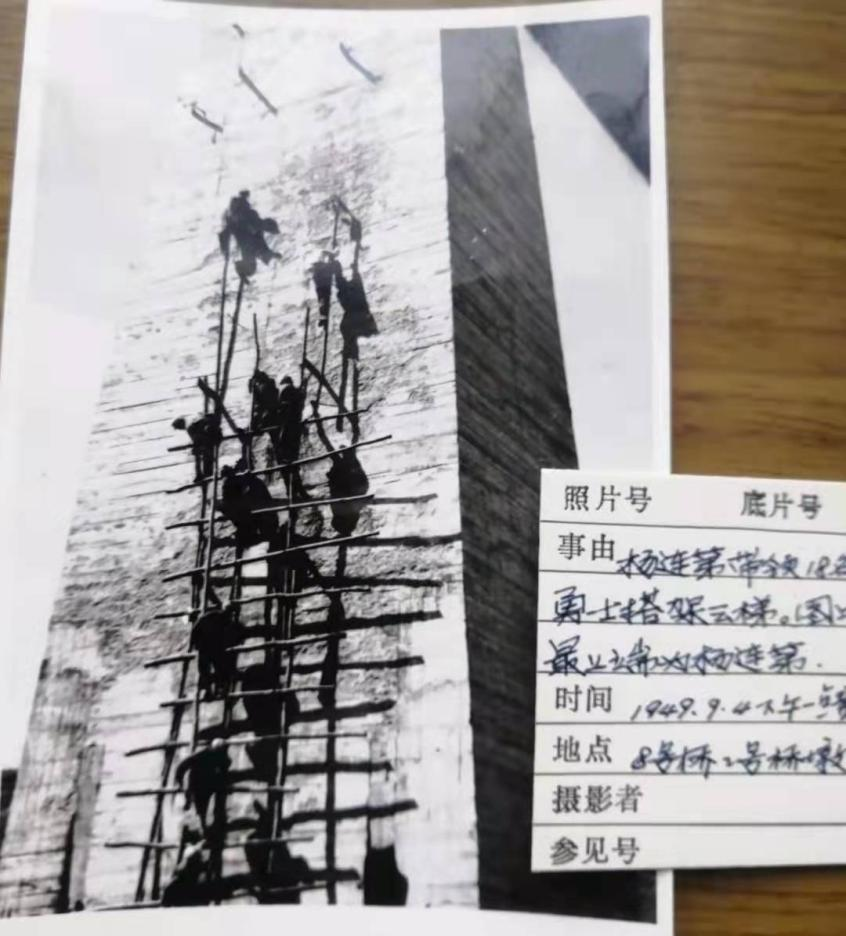 照片号 底片号
事由 杨连第带领18名
勇士搭架云梯。(图
最上端为杨连第.
时间 1949.9.4下午一点
地点 8号桥2号桥墩
摄影者
参见号